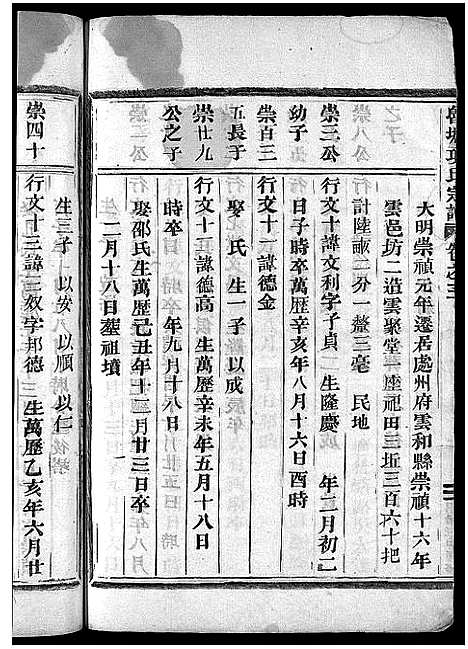 大明崇禎元年遷居處州府雲和縣崇禎十六年
雲邑坊二造雲聚堂一座祀田三坵三百六十把
計陸畝三分一釐三毫 民地
崇三公 行文十諱文利字子貞 生隆慶 年二月初二
幼子 日子時卒萬歷辛亥年八月十六日酉時
崇百三 行文十一諱德金
五長子 娶 氏 生一子 以成
崇廿九 行文十二諱德高 生萬歷辛未年五月十八日
公之子 時卒 年九月十八日
娶邵氏生萬歷己丑年十二月廿三日卒
二月十八日塟祖墳
生三子 以安 以順 以仁
崇四十 行文十三諱三效字邦德 生萬歷乙亥年六月廿